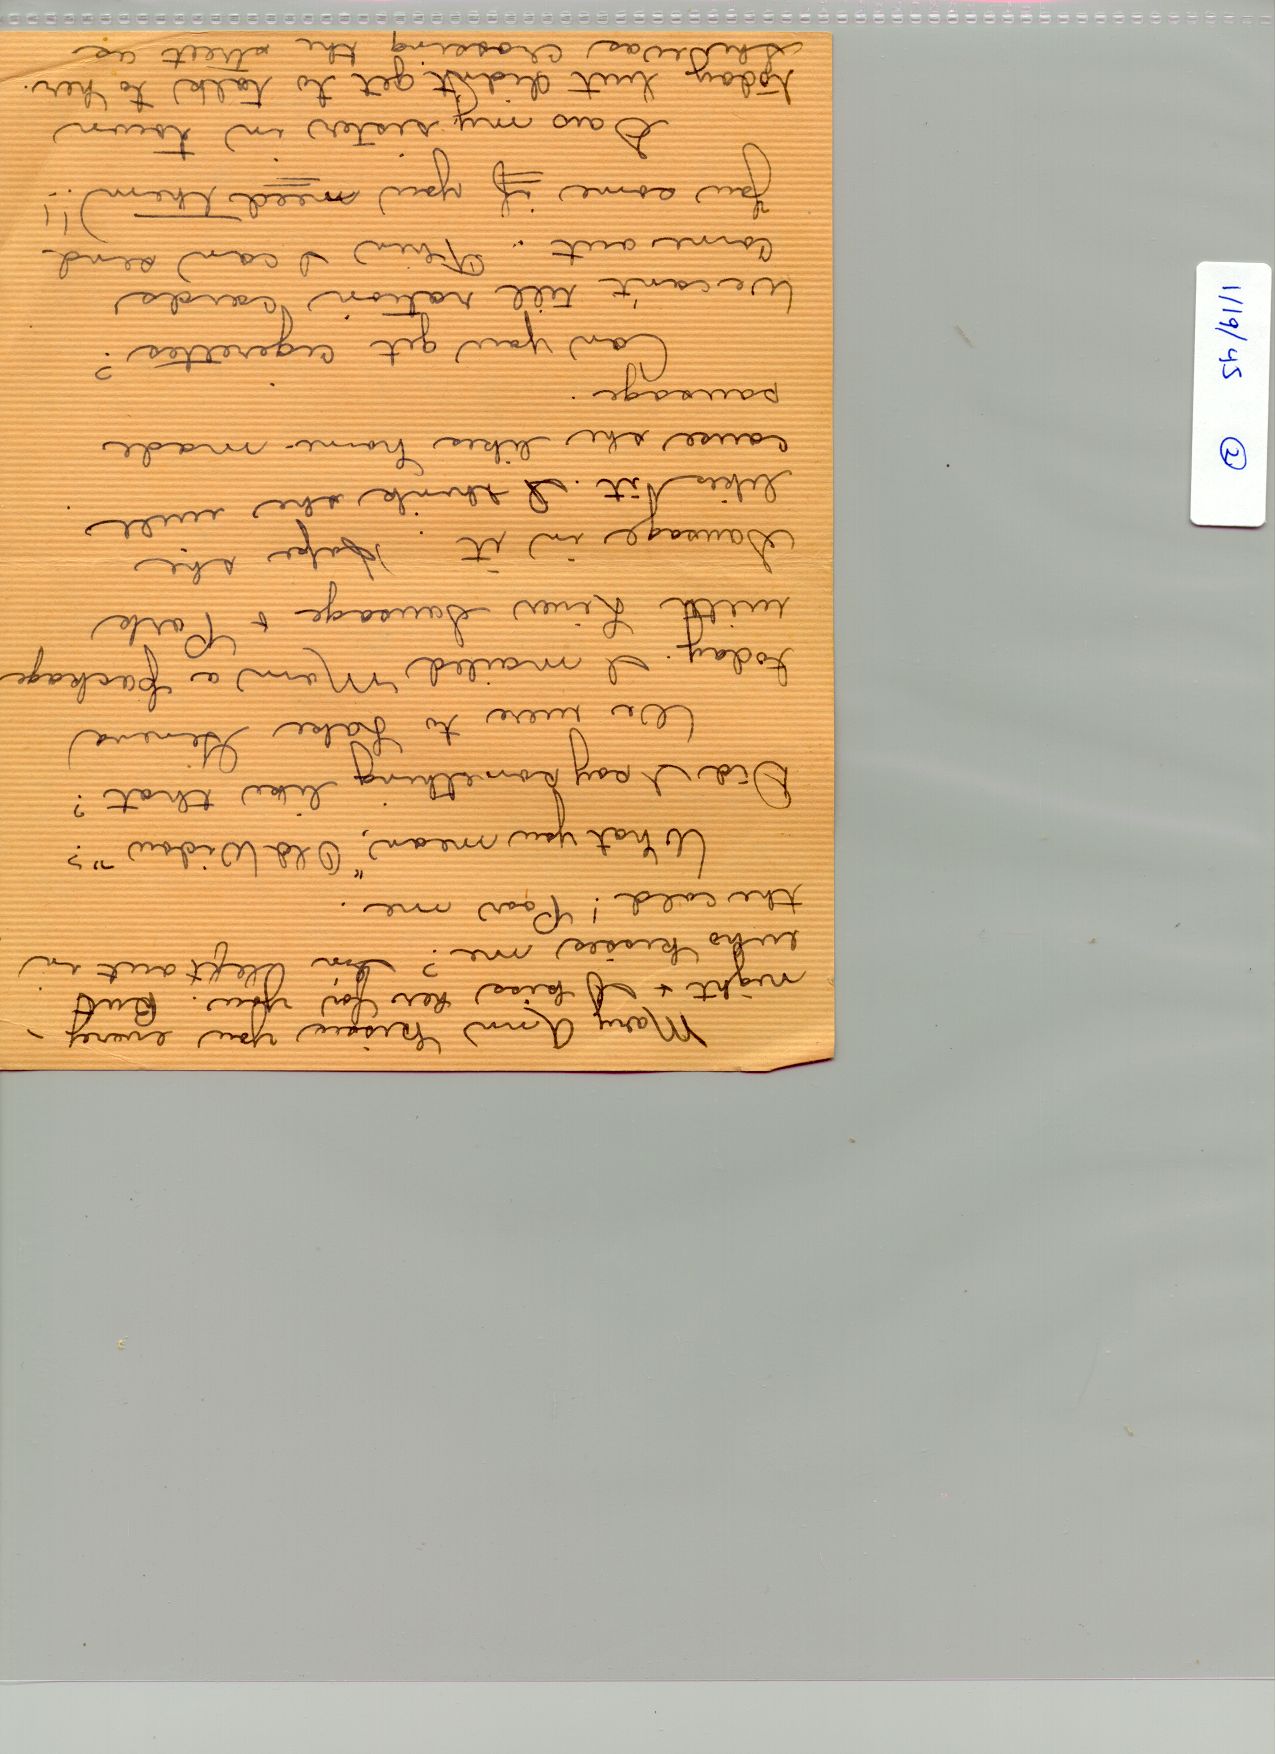 1/19/45 2
Mary Ann kisses you every-
night + I kiss her for you. But
who kisses me? I'm left out in
the cold! Poor me.
What you mean, "Old Widow"?
Did I say something like that?
We were to Lake Geneva
today. I mailed Mom a package
with Liver Sausage + Pork
Sausage in it. Hope she
likes it. I think she will
cause she likes home-made
sausage.
Can you get cigerettes?
We can't till ration cards
come out. Then I can send
you some if you need them!!)
Saw my sister in town
today but didn't get to talk to her.
She was crossing the street as